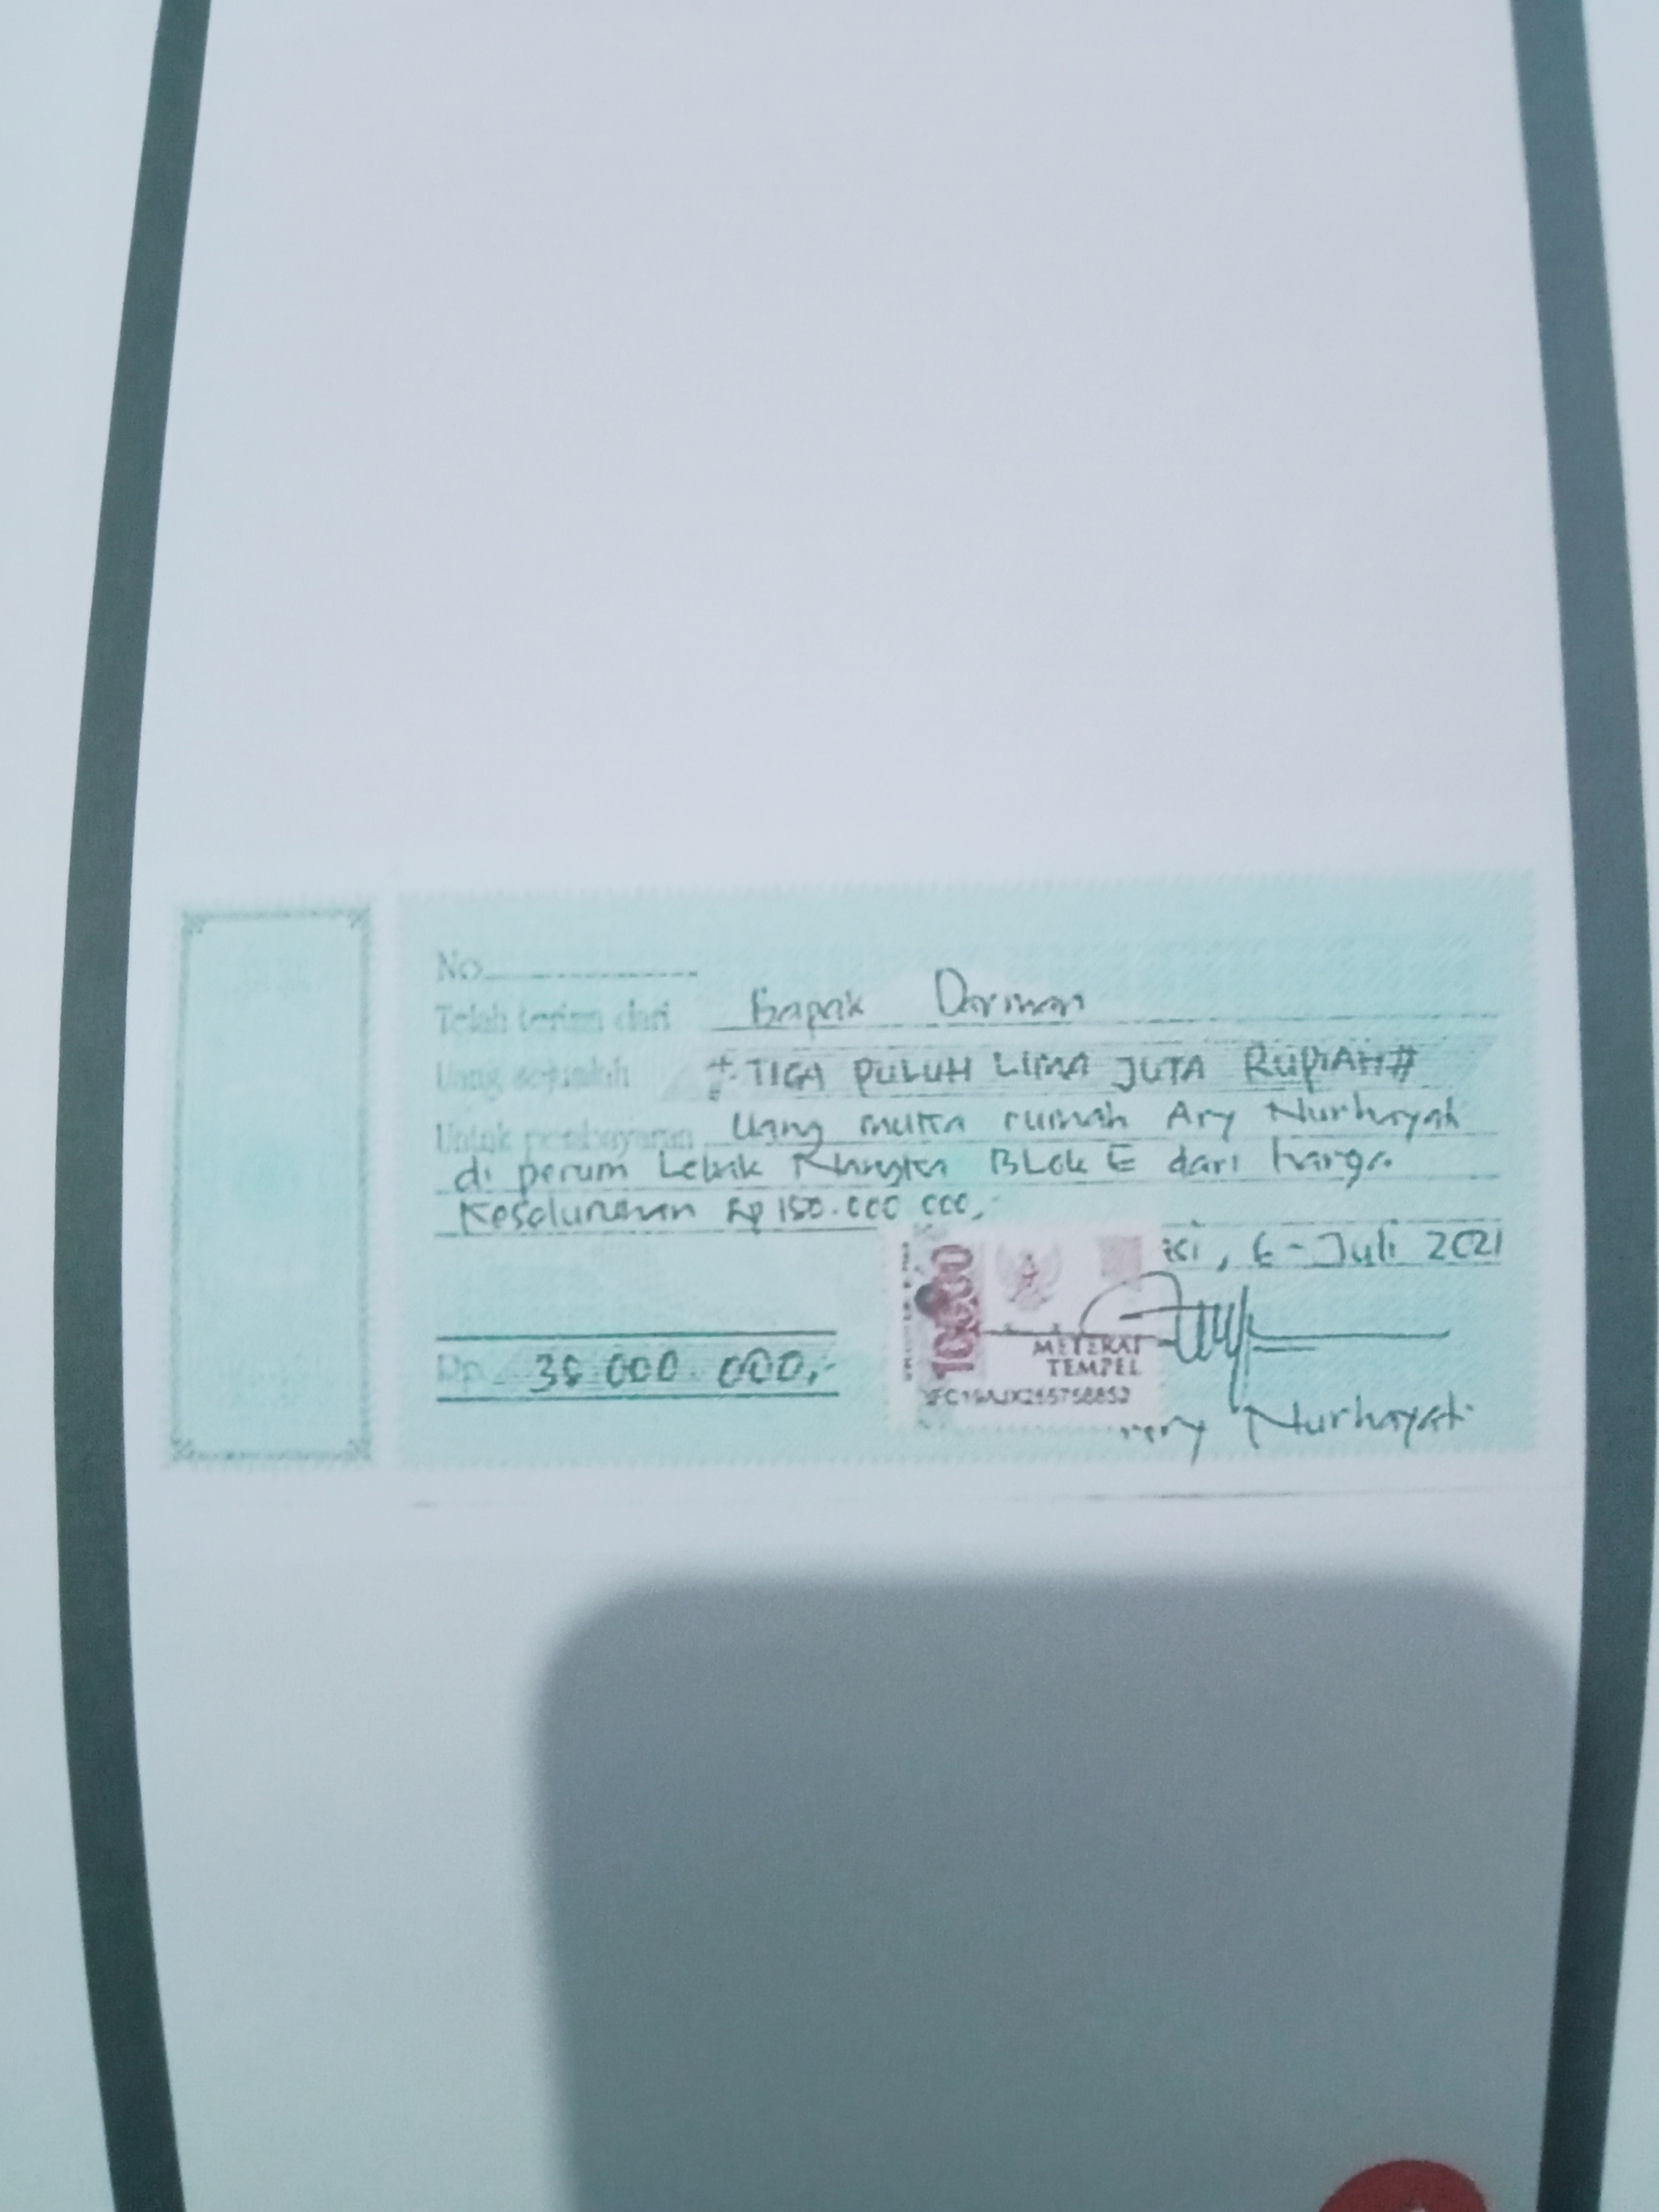 No.
Telah terima dari Bapak Darman
Uang sejumlah # TIGA PULUH LIMA JUTA RUPIAH #
Untuk pembayaran Uang muka rumah Ary Nurhayati
di perum Blok E dari harga
Keseluruhan Rp 150.000 000,-
6 - Juli 2021
10000
METERAI
TEMPEL
Rp. 35 000 000,-
Nurhayati